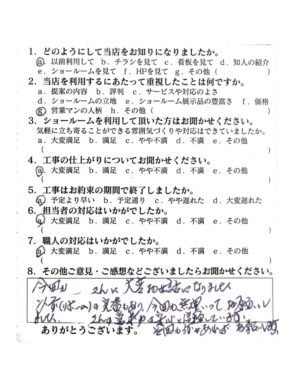 1. どのようにして当店をお知りになりましたか。
ⓐ 以前利用して b. チラシを見て c. 看板を見て d. 知人の紹介
e. ショールームを見て f. HPを見て g. その他 (
2. 当店を利用するにあたって重視したことは何ですか。
a. 提案の内容 b. 評判 c. サービスや対応のよさ
d. ショールームの立地 e. ショールーム展示品の豊富さ f. 価格
ⓖ 営業マンの人柄 h. その他 ( )
3. ショールームを利用して頂いた方はお聞かせください。
気軽に立ち寄ることができる雰囲気づくりや対応はできていましたか。
a. 大変満足 b. 満足 c. やや不満 d. 不満 e. その他
( )
4. 工事の仕上がりについてお聞かせください。
ⓐ 大変満足 b. 満足 c. やや不満 d. 不満 e. その他
( )
5. 工事はお約束の期間で終了しましたか。
ⓐ 予定より早い b. 予定通り c. やや遅れた d. 大変遅れた
6. 担当者の対応はいかがでしたか。
ⓐ 大変満足 b. 満足 c. やや不満 d. 不満 e. その他
( )
7. 職人の対応はいかがでしたか。
ⓐ 大変満足 b. 満足 c. やや不満 d. 不満 e. その他
( )
8. その他ご意見・ご感想などございましたらお聞かせください。
今回も さんに 大変お世話になりました
ありがとうございます。